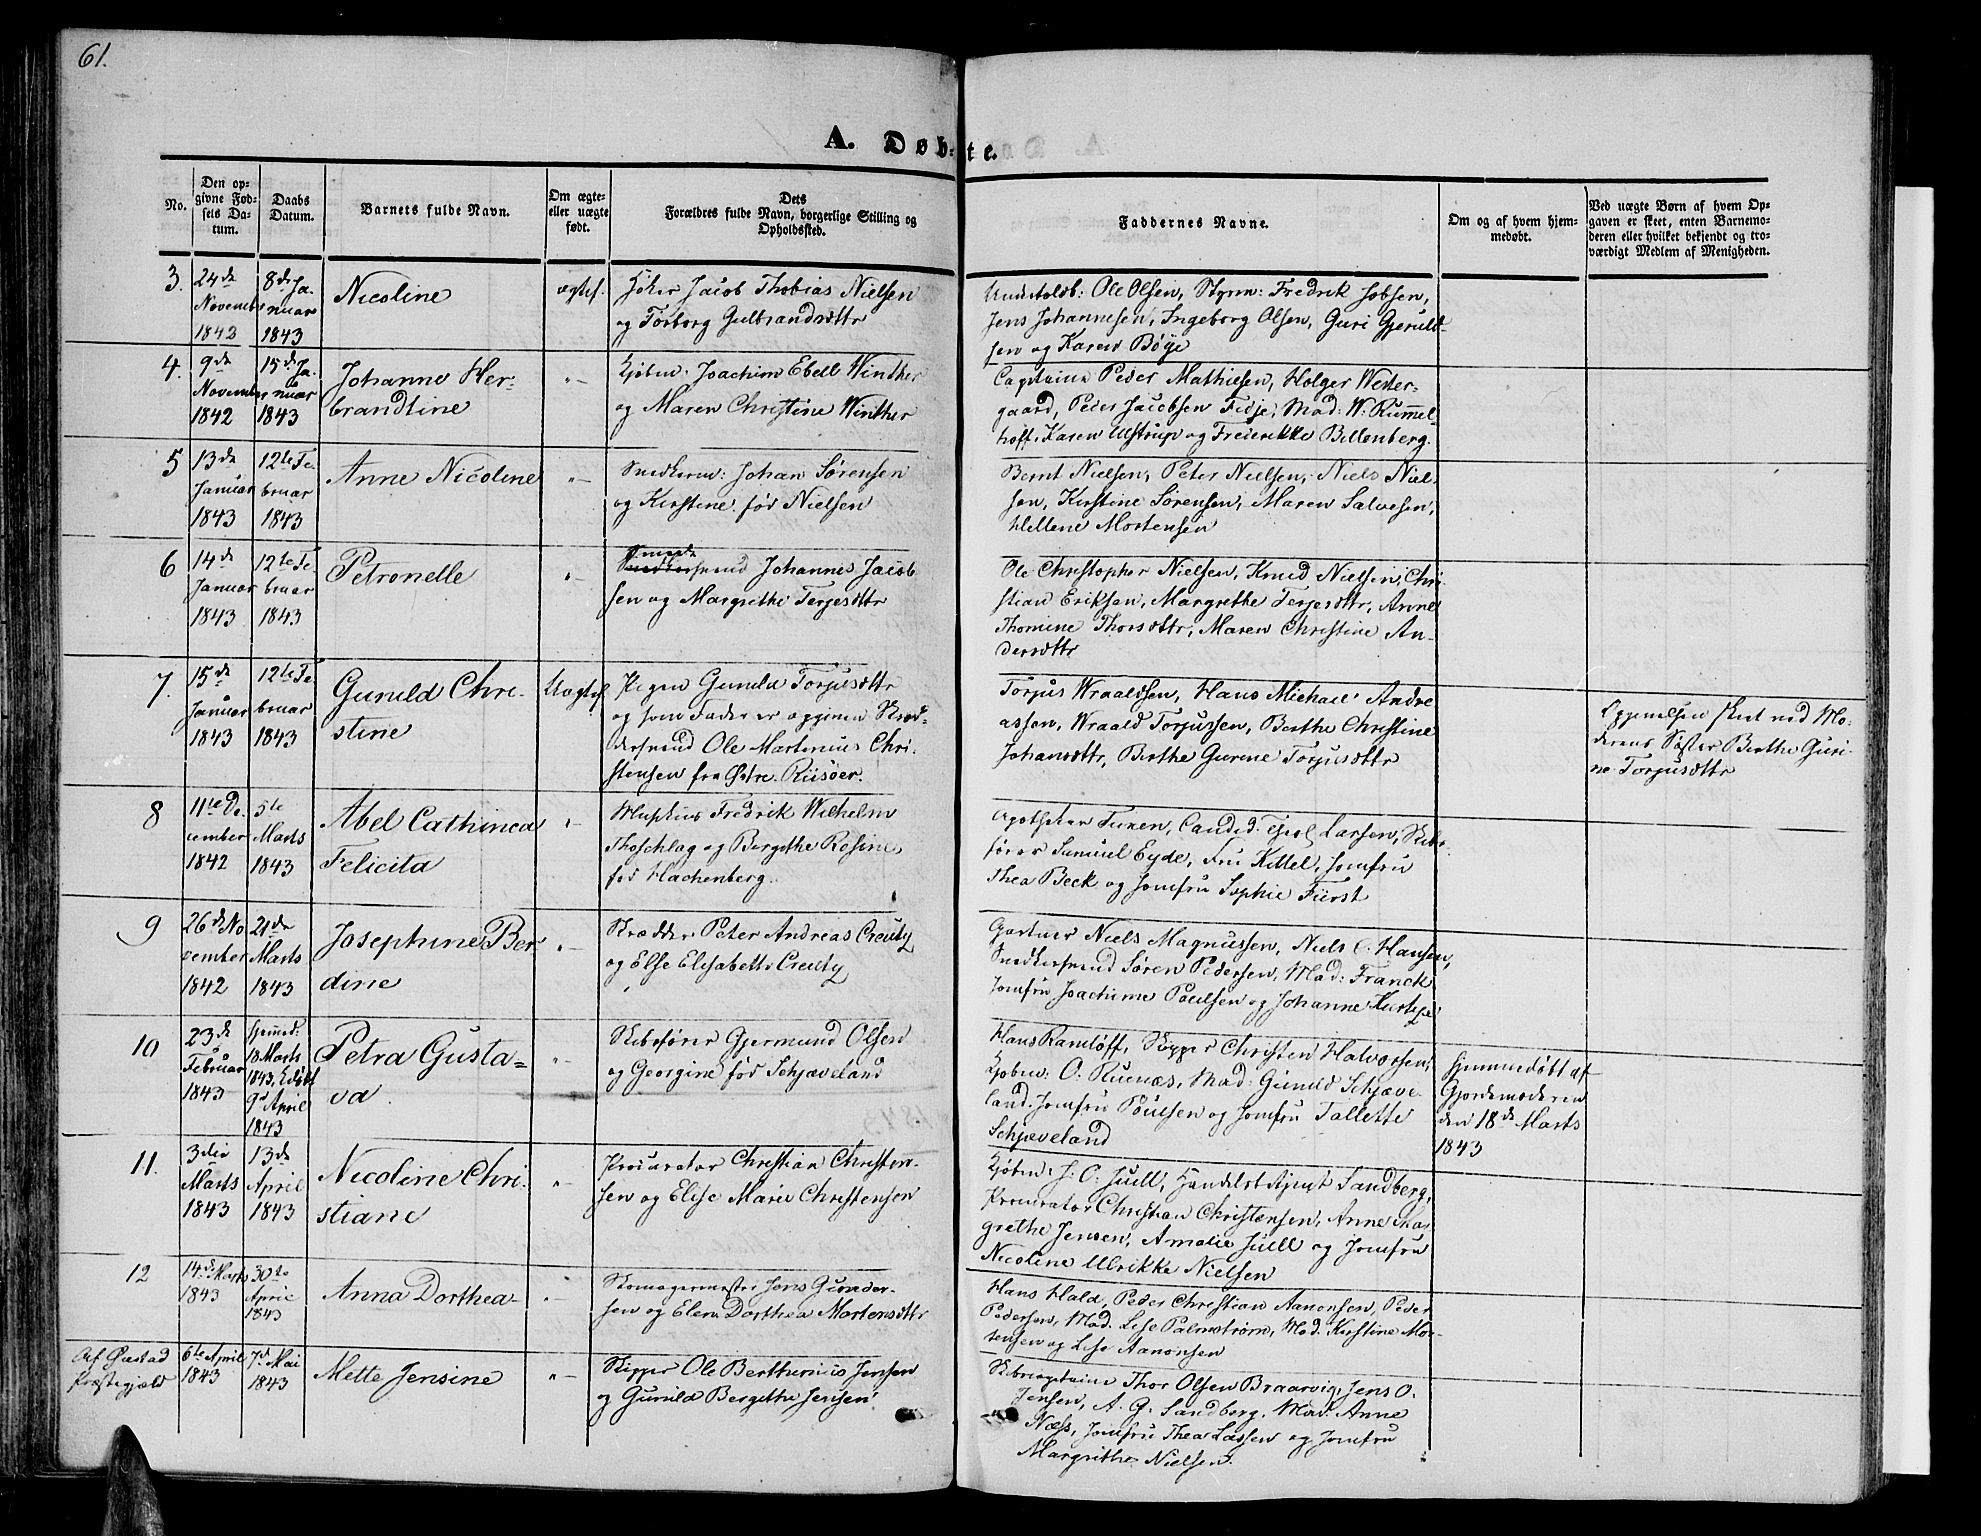 61.
A. Døbte.
No.
Den opgivne Fødsels Datum.
Daabs Datum.
Barnets fulde Navn.
Om ægte eller uægte født.
Dets Forældres fulde Navn, borgerlige Stilling og Opholdssted.
Faddernes Navne.
Om og af hvem hjemmedøbt.
Ved uægte Børn af hvem Opgaven er skeet, enten Barnemoderen eller hvilket bekjendt og troværdigt Medlem af Menigheden.
3.
24de
Novembr
1842
8de Ja-
nuar
1843
Nicoline
ægtef.
Jacob Thobias Nielsen
og Torborg Gulbrandsdttr
Ole Olsen, Styrm: Fredrik Jobsen,
Jens Johannesen, Ingeborg Olsen, Guri Gjeruld-
sen og Karen Böye
4.
9de
Novembr
1842
15de Ja-
nuar
1843
Johanne Her-
brandtine
"
Kjöbm: Joachim Ebell Winther
og Maren Christine Winther
Capitaine Peder Mathiesen, Holger Weder-
gaard, Peder Jacobsen Fidje, Mad: W. Rummel-
hoff, Karen Ulstrup og Frederikke Bellenberg.
5
13de
Januar
1843
12te Fe-
bruar
1843
Anne Nicoline
"
Snedkerm: Johan Sörensen
og Kirstine föd Nielsen
Bernt Nielsen, Peter Nielsen, Niels Niel-
sen, Kirstine Sörensen, Maren Salvesen,
Hellene Mortensen
6
14de
Januar
1843
12te Fe-
bruar
1843
Petronelle
"
Smede
Snedkersvend Johannes Jacob-
sen og Margrethe Terjesdttr
Ole Christopher Nielsen, Knud Nielsen, Chri-
stian Eriksen, Margrethe Terjesdttr, Anne
Thomine Thorsdttr, Maren Christine An-
dersdttr
7.
15de
Januar
1843
12te Fe-
bruar
1843
Gunild Chri-
stine
Uægtef.
Pigen Gunild Torjusdttr
og som Fader er opgiven Skræd-
dersvend Ole Martinius Chri-
stensen fra Østre Riisöer.
Torjus Wraaldsen, Hans Michael Andre-
assen, Wraald Torjussen, Berthe Christine
Johansdttr, Berthe Gurine Torjusdttr
Opgivelsen skeet ved Mo-
derens Söster Berthe Guri-
ne Torjusdttr
8
11te De-
cember
1842
5te
Marts
1843
Abel Cathinca
Felicita
"
Musikus Fredrik Wilhelm
Thoschlag og Bergithe Rosine
föd Hachenberg.
Apotheker Tuxen, Candid. Theol Larsen, Skibs-
förer Samuel Eyde, Fru Kittel, Jomfru
Thea Beck og Jomfru Sophie Fürst
9
26de No-
vember
1842
21de
Marts
1843
Josephine Ber-
dine
"
Skrædder Peter Andreas Creutz
og Else Elisabeth Creutz
Gartner Niels Magnussen, Niels C. Hansen,
Snedkersvend Sören Pedersen, Mad: Franck
Jomfru Joachime Poulsen og Johanne
10
23de
Februar
1843
Hjemmed.
18 Marts
1843,
9de April
1843
Petra Gusta-
va.
"
Skibsförer Gjermund Olsen
og Georgine föd Schjæveland
Hans Ramlöff, Skipper Christen Halvorsen,
Kjöbm: O. Ruenæs, Mad: Gunild Schjæve-
land, Jomfru Poulsen og Jomfru Tallette
Schjæveland
Hjemmedöbt af
Gjordemoderen
den 18de Marts
1843
11.
3die
Marts
1843
13de
April
1843
Nicoline Chri-
stiane
"
Procurator Christian Christen-
sen og Elise Marie Christensen
Kjöbm: J. O. Juell, Handels Agent Sandberg,
Procurator Christian Christensen, Anne Mar-
grethe Jensen, Amalie Juell og Jomfru
Nicoline Ulrikke Nielsen
12
14de Marts
1843
30te
April
1843
Anna Dorthea
"
Skomagermester Jens Gunder-
sen og Elen Dorthea Mortensdttr
Hans Hald, Peder Christian Aanonsen, Peder
Pedersen, Mad. Lise Palmström, Mad. Kirstine Mor-
tensen og Lise Aanonsen
Af Øiestad
Præstegjæld
6te April
1843
7de Mai
1843
Mette Jensine
"
Skipper Ole Berthinius Jensen
og Gunild Bergithe Jensen.
Skibscapitaine Thor Olsen Braarvig, Jens O.
Jensen, A. G. Sandberg, Mad. Anne
Næss, Jomfru Thea Lassen og Jomfru
Margrithe Nielsen.